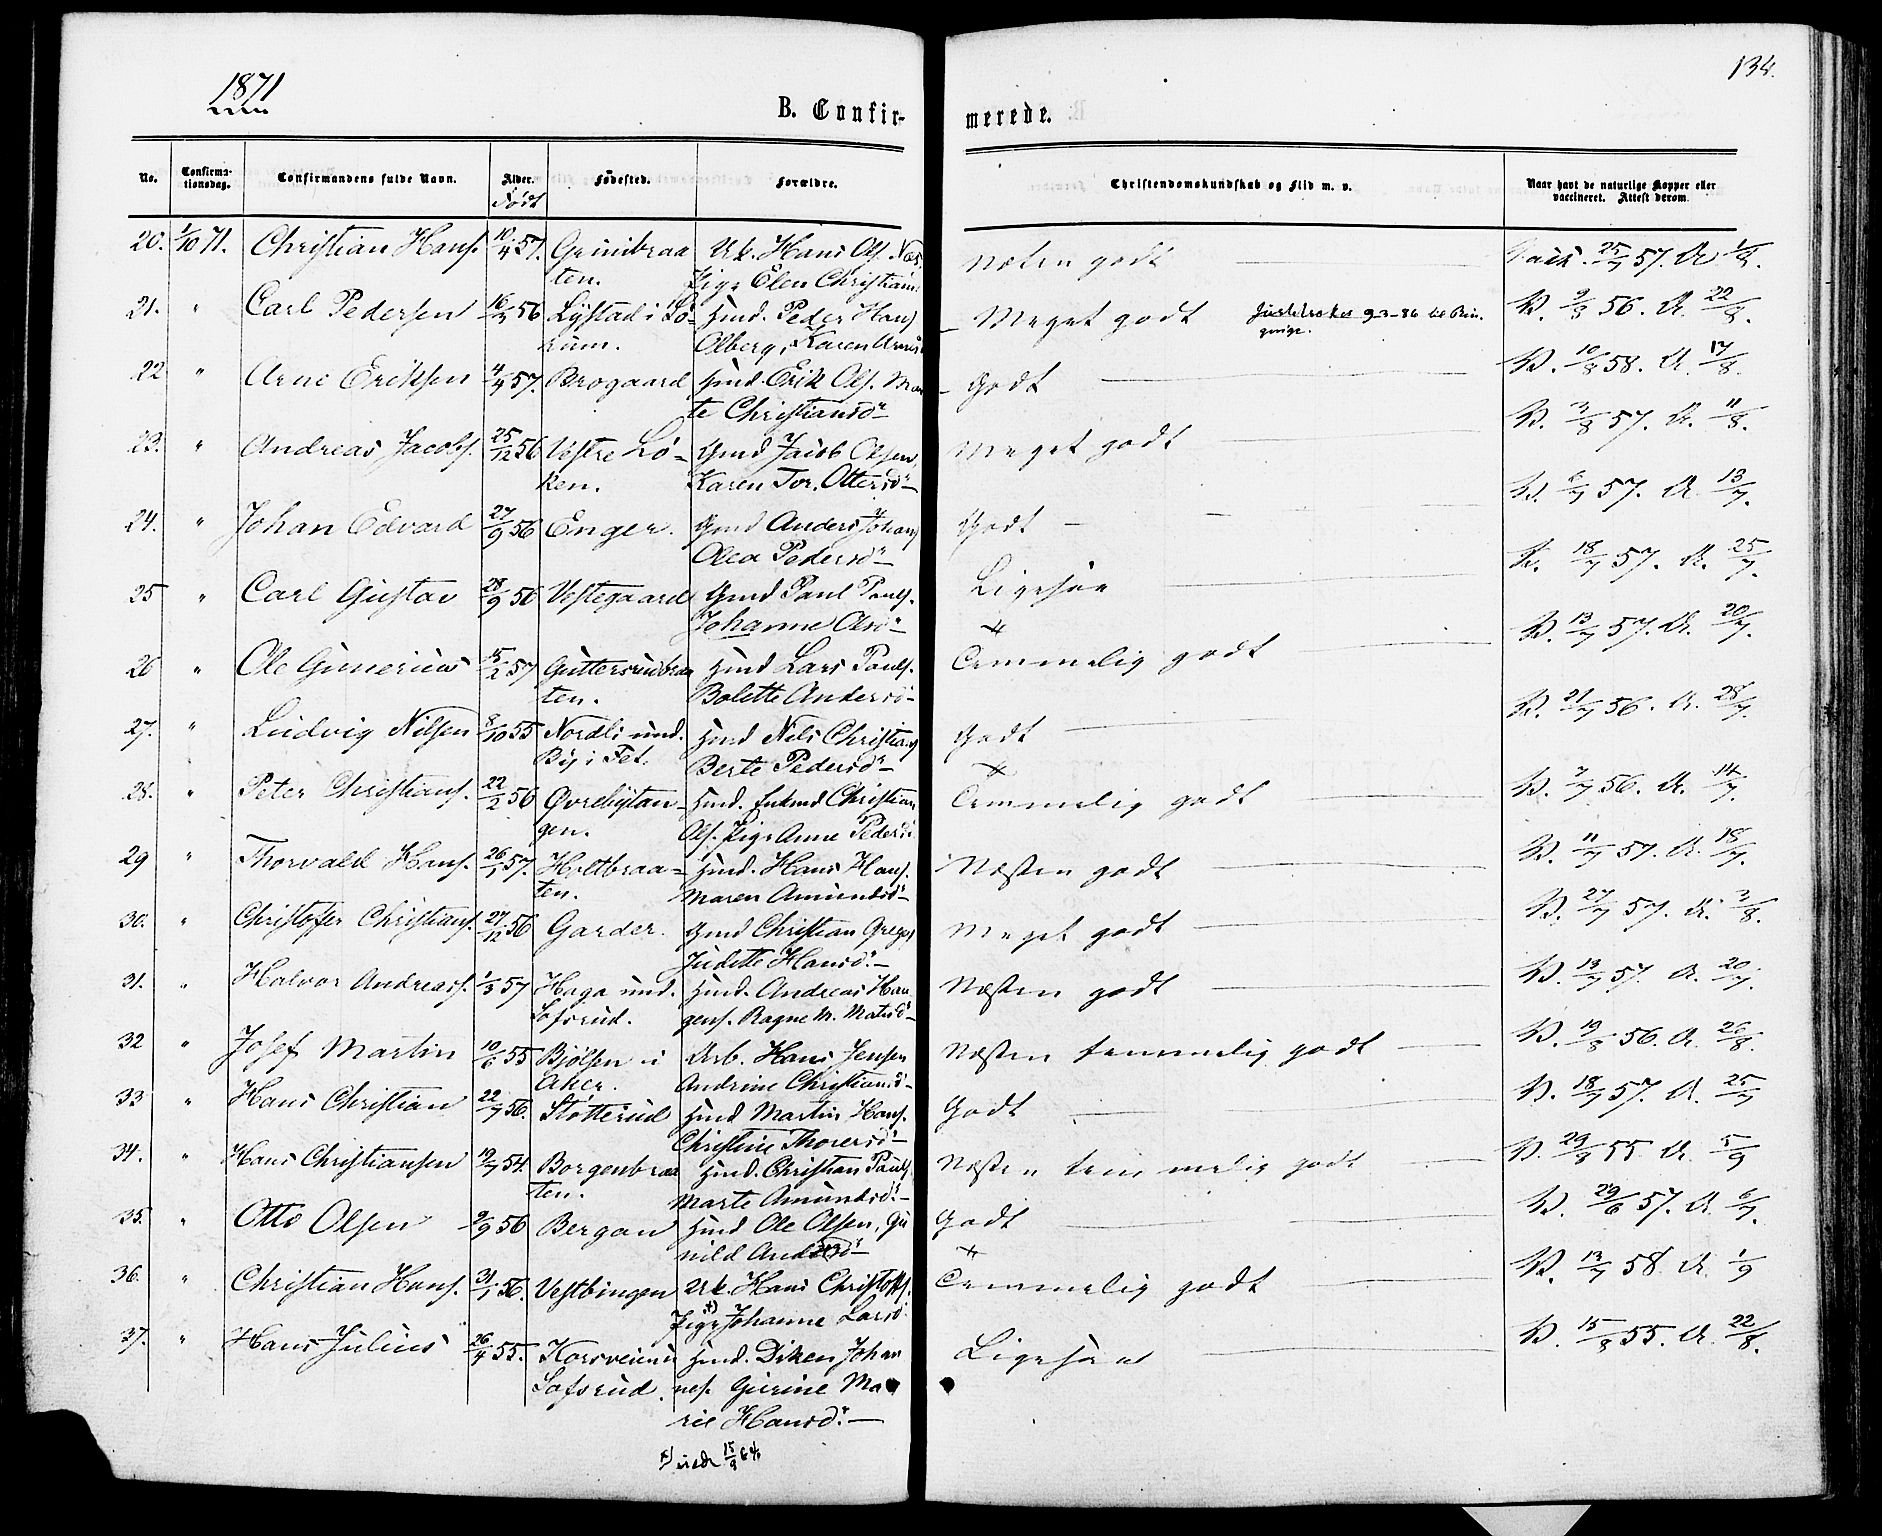 1871
134.
B. Confirmerede.
No. Confirmationsdag. Confirmandens fulde Navn. Alder. Født Fødested. Forældre. Christendomskundskab og Flid m. v. Naar havt de naturlige Kopper eller vaccineret. Attest derom.
20. 1/10 71. Christian Hans. 10/4 57. Grinibraa Ub. Hans Ols. Næsten godt 25/7 57. A
ten. Pige Elen Christians
21. " Carl Pedersen 16/3 56 Lystad i Lö- Hmd. Peder Hans Meget godt V. 9/8 56. A. 22/8.
kum. Olberg, Karen
22 " Arne Eriksen 4/4 57. Brogaard Gmd. Erik Ols. Mar Godt V. 10/8 58. A. 17/8.
te Christiansd-
23. " Andreas Jacobs. 25/12 56 Vestre Lö- Gmd Jacob Olsen, Meget godt V. 3/8 57. A. 11/8.
ken. Karen Tor. Ottersd-
24. " Johan Edvard 27/9 56 Enger. Gmd Anders Johans Godt V. 6/7 57. A. 13/7.
Olea Pedersd-
25 " Carl Gustav 28/9 56 Vestegaard Gmd Paul Pauls. Ligesaa V. 18/7 57. A. 25/7.
Johanne Olsd-
26 " Ole Gunerius 15/2 57 Guttersrudbraa Hmd Lars Pauls. Temmelig godt V. 13/7 57. A. 20/7.
ten. Bolette Andersd-
27. " Ludvig Nilsen 8/10 55 Nordli und. Hmd Nils Christians Godt V. 21/7 56. A. 28/7.
By i Fet. Berte Pedersd-
28. " Peter Christians. 22/2 56 Øvrebytan- Hmd. Enkmd Christian Temmelig godt V. 7/7 56. A. 14/7.
gen. Ols. Pige Anne Pedersd
29 " Thorvald Hans. 26/1 57. Holtbraa- Hmd. Hans Hans. Næsten godt V. 11/7 57. A. 18/7.
ten. Maren Amundsd-
30. " Christoffer Christians. 27/12 56 Garder. Gmd Christian Gregers Meget godt V. 27/7 57. A. 3/8.
Judette Hansd.-
31. " Halvor Andreass. 1/3 57 Haga und. Hmd. Andreas Haa Næsten godt V. 13/7 57. A. 20/7.
Lofsrud. gens. Ragne M. Matisd-
32 " Josef Martin 10/6 55 Bjölsen i Arb. Hans Jensen Næsten temmelig godt V. 19/8 56. A. 26/8.
Aker. Andrine Christiansd-
33 " Hans Christian 22/7 56. Støtterud Hmd Martin Hans. Godt V. 18/7 57. A. 25/7
Christine Thorersd-
34. " Hans Christiansen 12/7 54. Borgenbraa Hmd. Christian Pauls Næsten temmelig godt V. 29/8 55 A. 5/9
ten. Marte Amundsd.-
35. " Otto Olsen 2/9 56 Bergan Hmd Ole Olsen, Gu Godt V. 29/6 57. A. 6/7.
nild Andersd-
36. " Christian Hans. 31/1 56. Vestbingen Ub. Hans Christoffs. Temmelig godt V. 13/7 58 A. 1/9
Pige Johanne Larsd.
37. " Hans Julius 26/4 55. Korsveien u Hmd. Diken Johan Ligesaa V. 15/8 55. A. 22/8.
Lofsrud. nes. Gurine Ma
rie Hansd.-
15/9 64